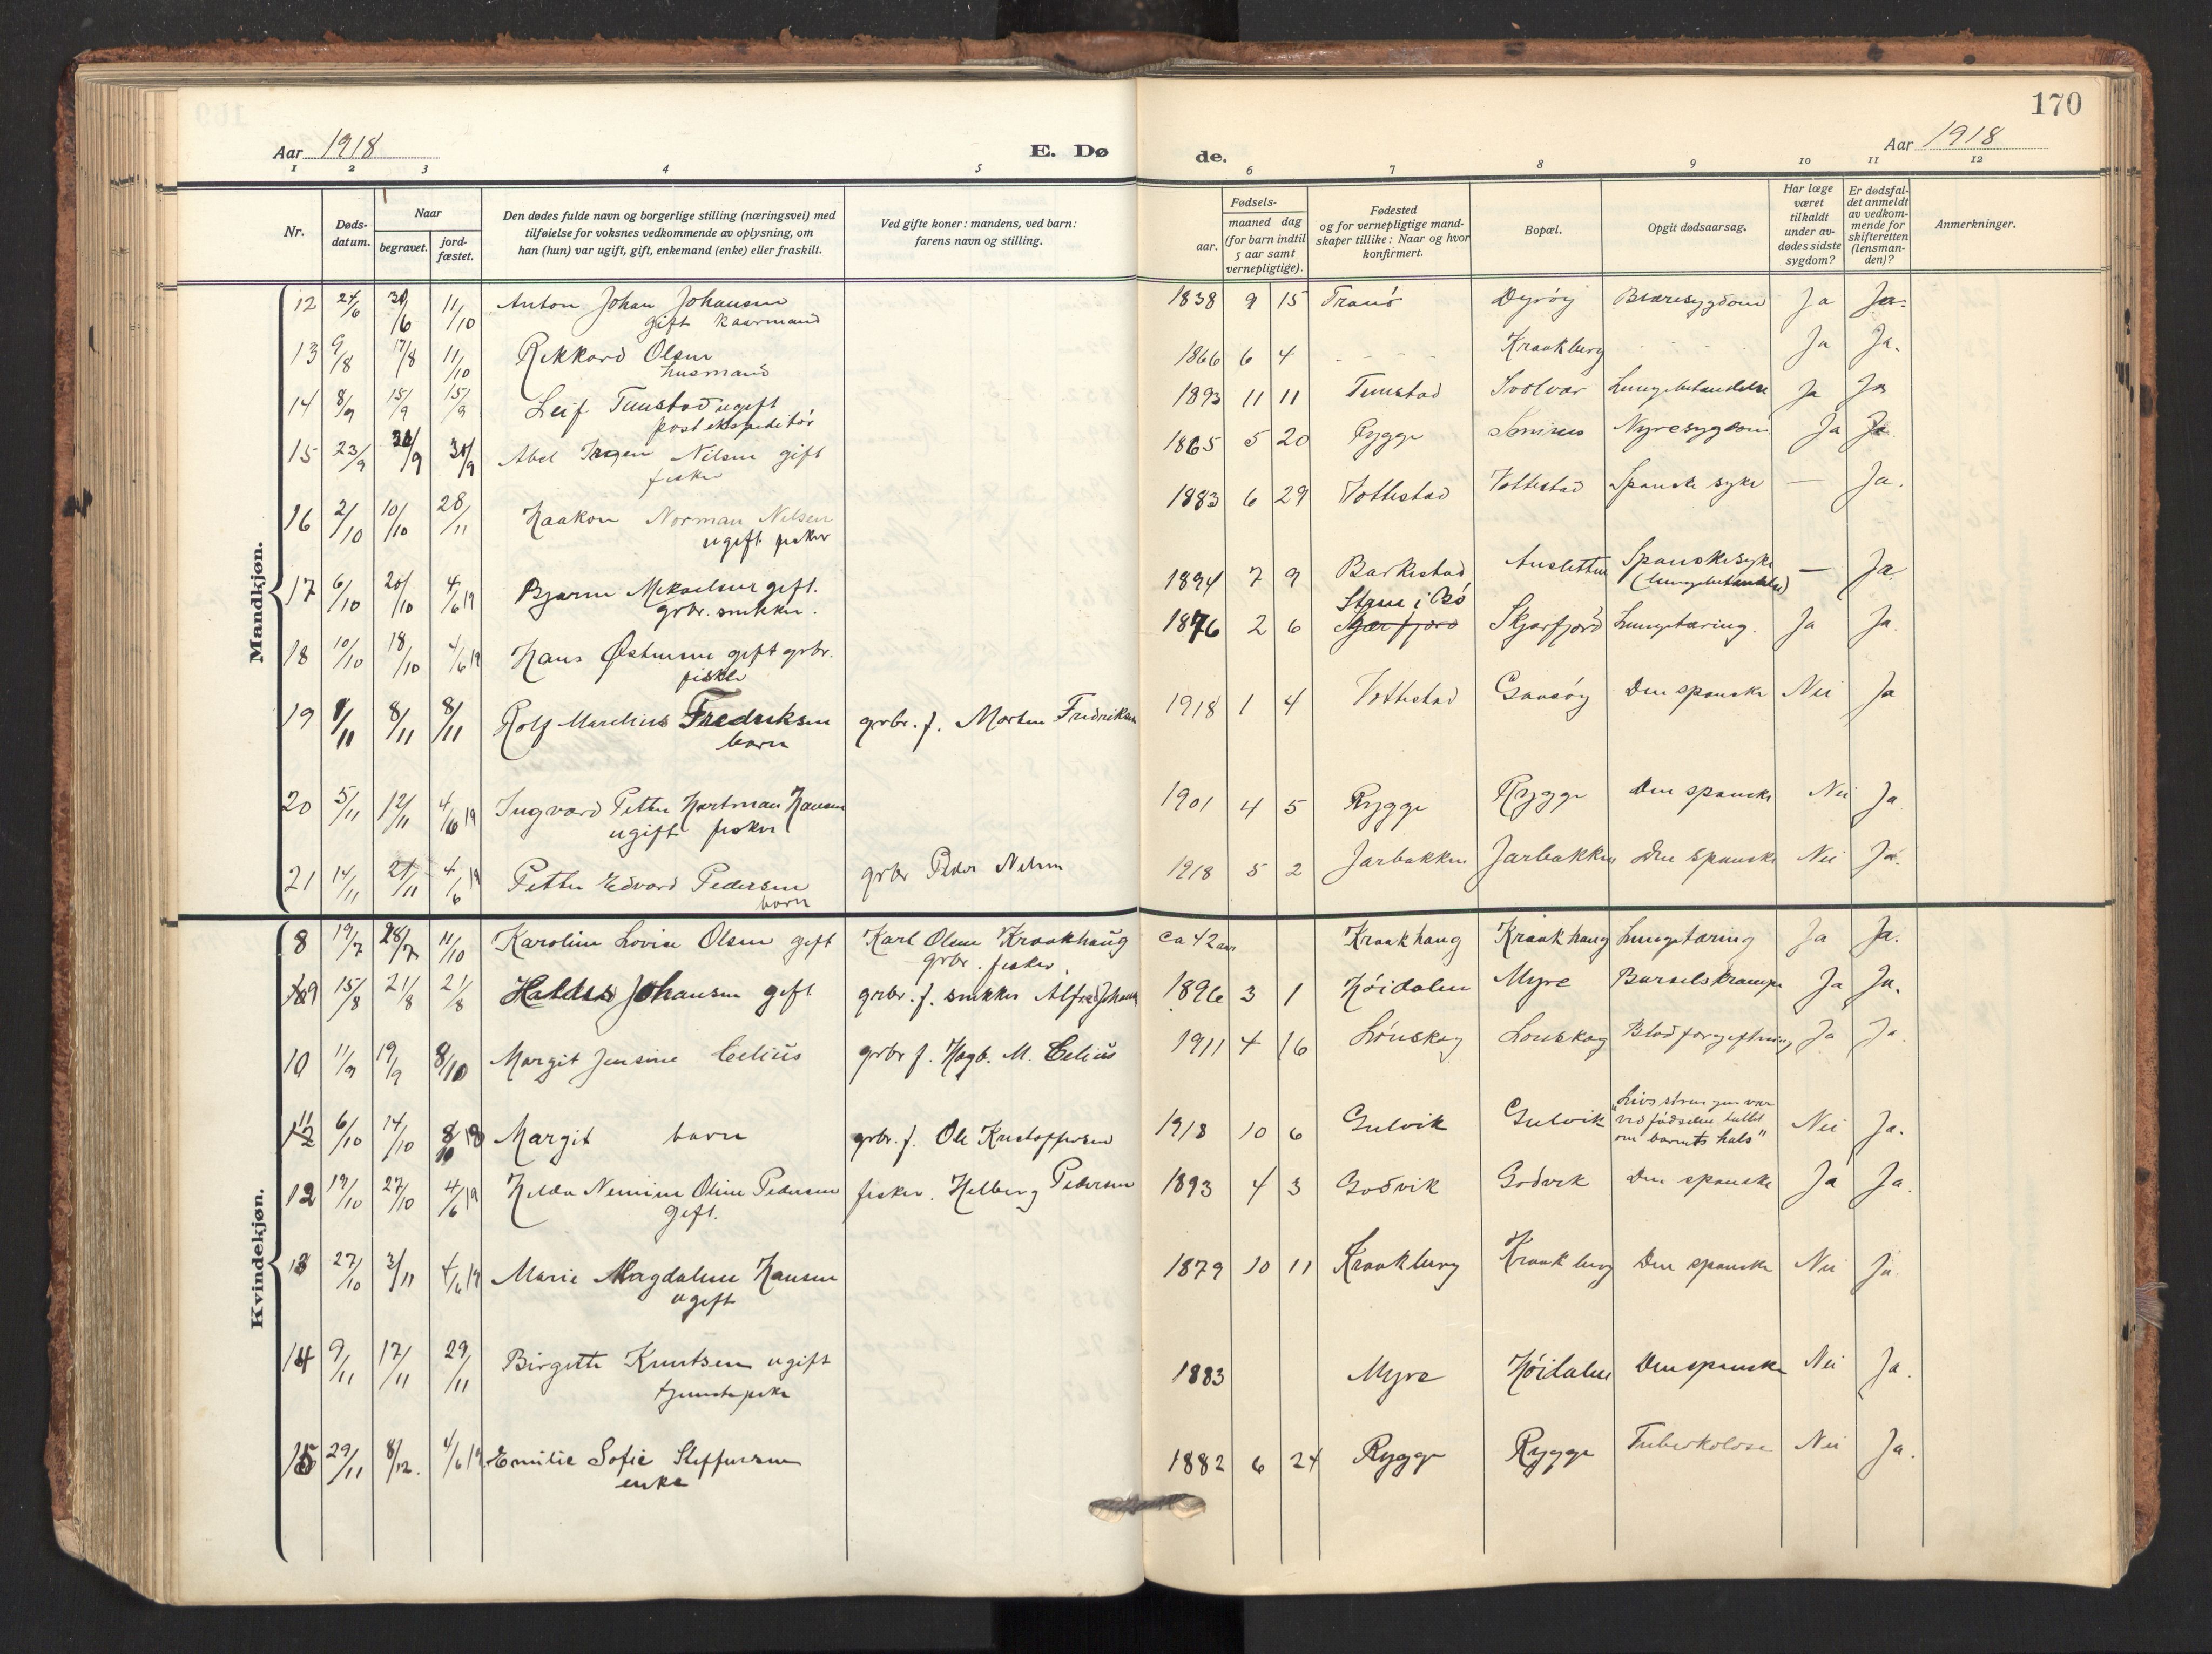 170
Aar 1918
E. Dø
de.
Aar 1918
1 2 3 4 5 6 7 8 9 10 11 12
Nr.
Døds-
datum.
Naar
begravet.
jord-
fæstet.
Den dødes fulde navn og borgerlige stilling (næringsvei) med
tilføielse for voksnes vedkommende av oplysning, om
han (hun) var ugift, gift, enkemand (enke) eller fraskilt.
Ved gifte koner: mandens, ved barn:
farens navn og stilling.
Fødsels-
aar.
maaned dag
(for barn indtil
5 aar samt
vernepligtige).
Fødested
og for vernepligtige mand-
skaper tillike: Naar og hvor
konfirmert.
Bopæl.
Opgit dødsaarsag.
Har læge
været
tilkaldt
under av-
dødes sidste
sygdom?
Er dødsfal-
det anmeldt
av vedkom-
mende for
skifteretten
(lensman-
den)?
Anmerkninger.
Mandkjøn.
12 24/6 30/6 11/10 Anton Johan Johansen 1838 9 15 Tranö Dyröy Ja Ja.
gift kaarmand
13 9/8 17/8 11/10 Rikkard Olsen 1866 6 4 Kraakberg Ja Ja.
husmand
14 8/9 15/9 15/9 Leif Tunstad ugift 1893 11 11 Tunstad Svolvær Lungebetændelse Ja Ja
postekspeditör
15 23/9 30/9 30/9 Abel Nilsen gift 1865 5 20 Rygge Nyresygdom Ja Ja.
fisker
16 2/10 10/10 28/11 Haakon Norman Nilsen 1883 6 29 Vottestad Vottestad Spanske syke — Ja.
ugift fisker
17 6/10 20/10 4/6 19 Bjarne Mikaelsen gift. 1894 7 9 Barkestad Spanskesyke — Ja
grbr. snekker. (lungebetændelse)
Stene i Bö
18 10/10 18/10 4/6 19 Hans Østensen gift grbr. 1876 2 6 Skjærfjord Skjærfjord Lungetæring. Ja Ja.
fisker
19 1/11 8/11 8/11 Rolf Marelius Fredriksen grbr. f. Morten Fredriksen 1918 1 4 Vottestad Gaasöy Den spanske Nei Ja
barn
20 5/11 12/11 4/6 19 Ingvard Petter Hartman Hansen 1901 4 5 Rygge Rygge Den spanske Nei Ja
ugift fisker
21 14/11 21/11 4/6 19 Petter Edvard Pedersen grbr Peder Nilsen 1918 5 2 Jarbakken Jarbakken Den spanske Nei Ja.
barn
Kvindekjøn.
8 19/7 28/7 11/10 Karoline Lovise Olsen gift Karl Olsen Kraakhaug ca 42 aar Kraakhaug Kraakhaug Lungetæring Ja Ja.
grbr. fisker.
9 15/8 21/8 21/8 Johansen gift grbr. f. snekker Alfred Johansen 1896 3 1 Höidalen Myre Barselskrampe Ja Ja.
10 11/9 19/9 8/10 Margit Jensine Celius grbr f. Hagb. M. Celius 1911 4 16 Lönskog Lonskog Blodforgiftning Ja Ja.
11 6/10 14/10 8/10 18 Margit barn grbr. f. Ole Kristoffersen 1918 10 6 Gulvik Gulvik "Livsstrengen var
ved födselen tullet
om barnets hals" Nei Ja.
12 19/10 27/10 4/6 19 Hilda Nemine Oline Pedersen fisker. Helberg Pedersen 1893 4 3 Godvik Godvik Den spanske Ja Ja.
Gift.
13 27/10 3/11 4/6 19 Marie Magdalene Hansen 1879 10 11 Kraakberg Kraakberg Den spanske Nei Ja.
ugift
14 9/11 17/11 29/11 Birgitte Knutsen ugift 1883 Myre Höidalen Den spanske Nei Ja.
tjenestepike
15 29/11 8/12. 4/6 19. Emilie Sofie Steffensen 1882 6 24 Rygge Rygge Tuberkolose Nei Ja.
enke